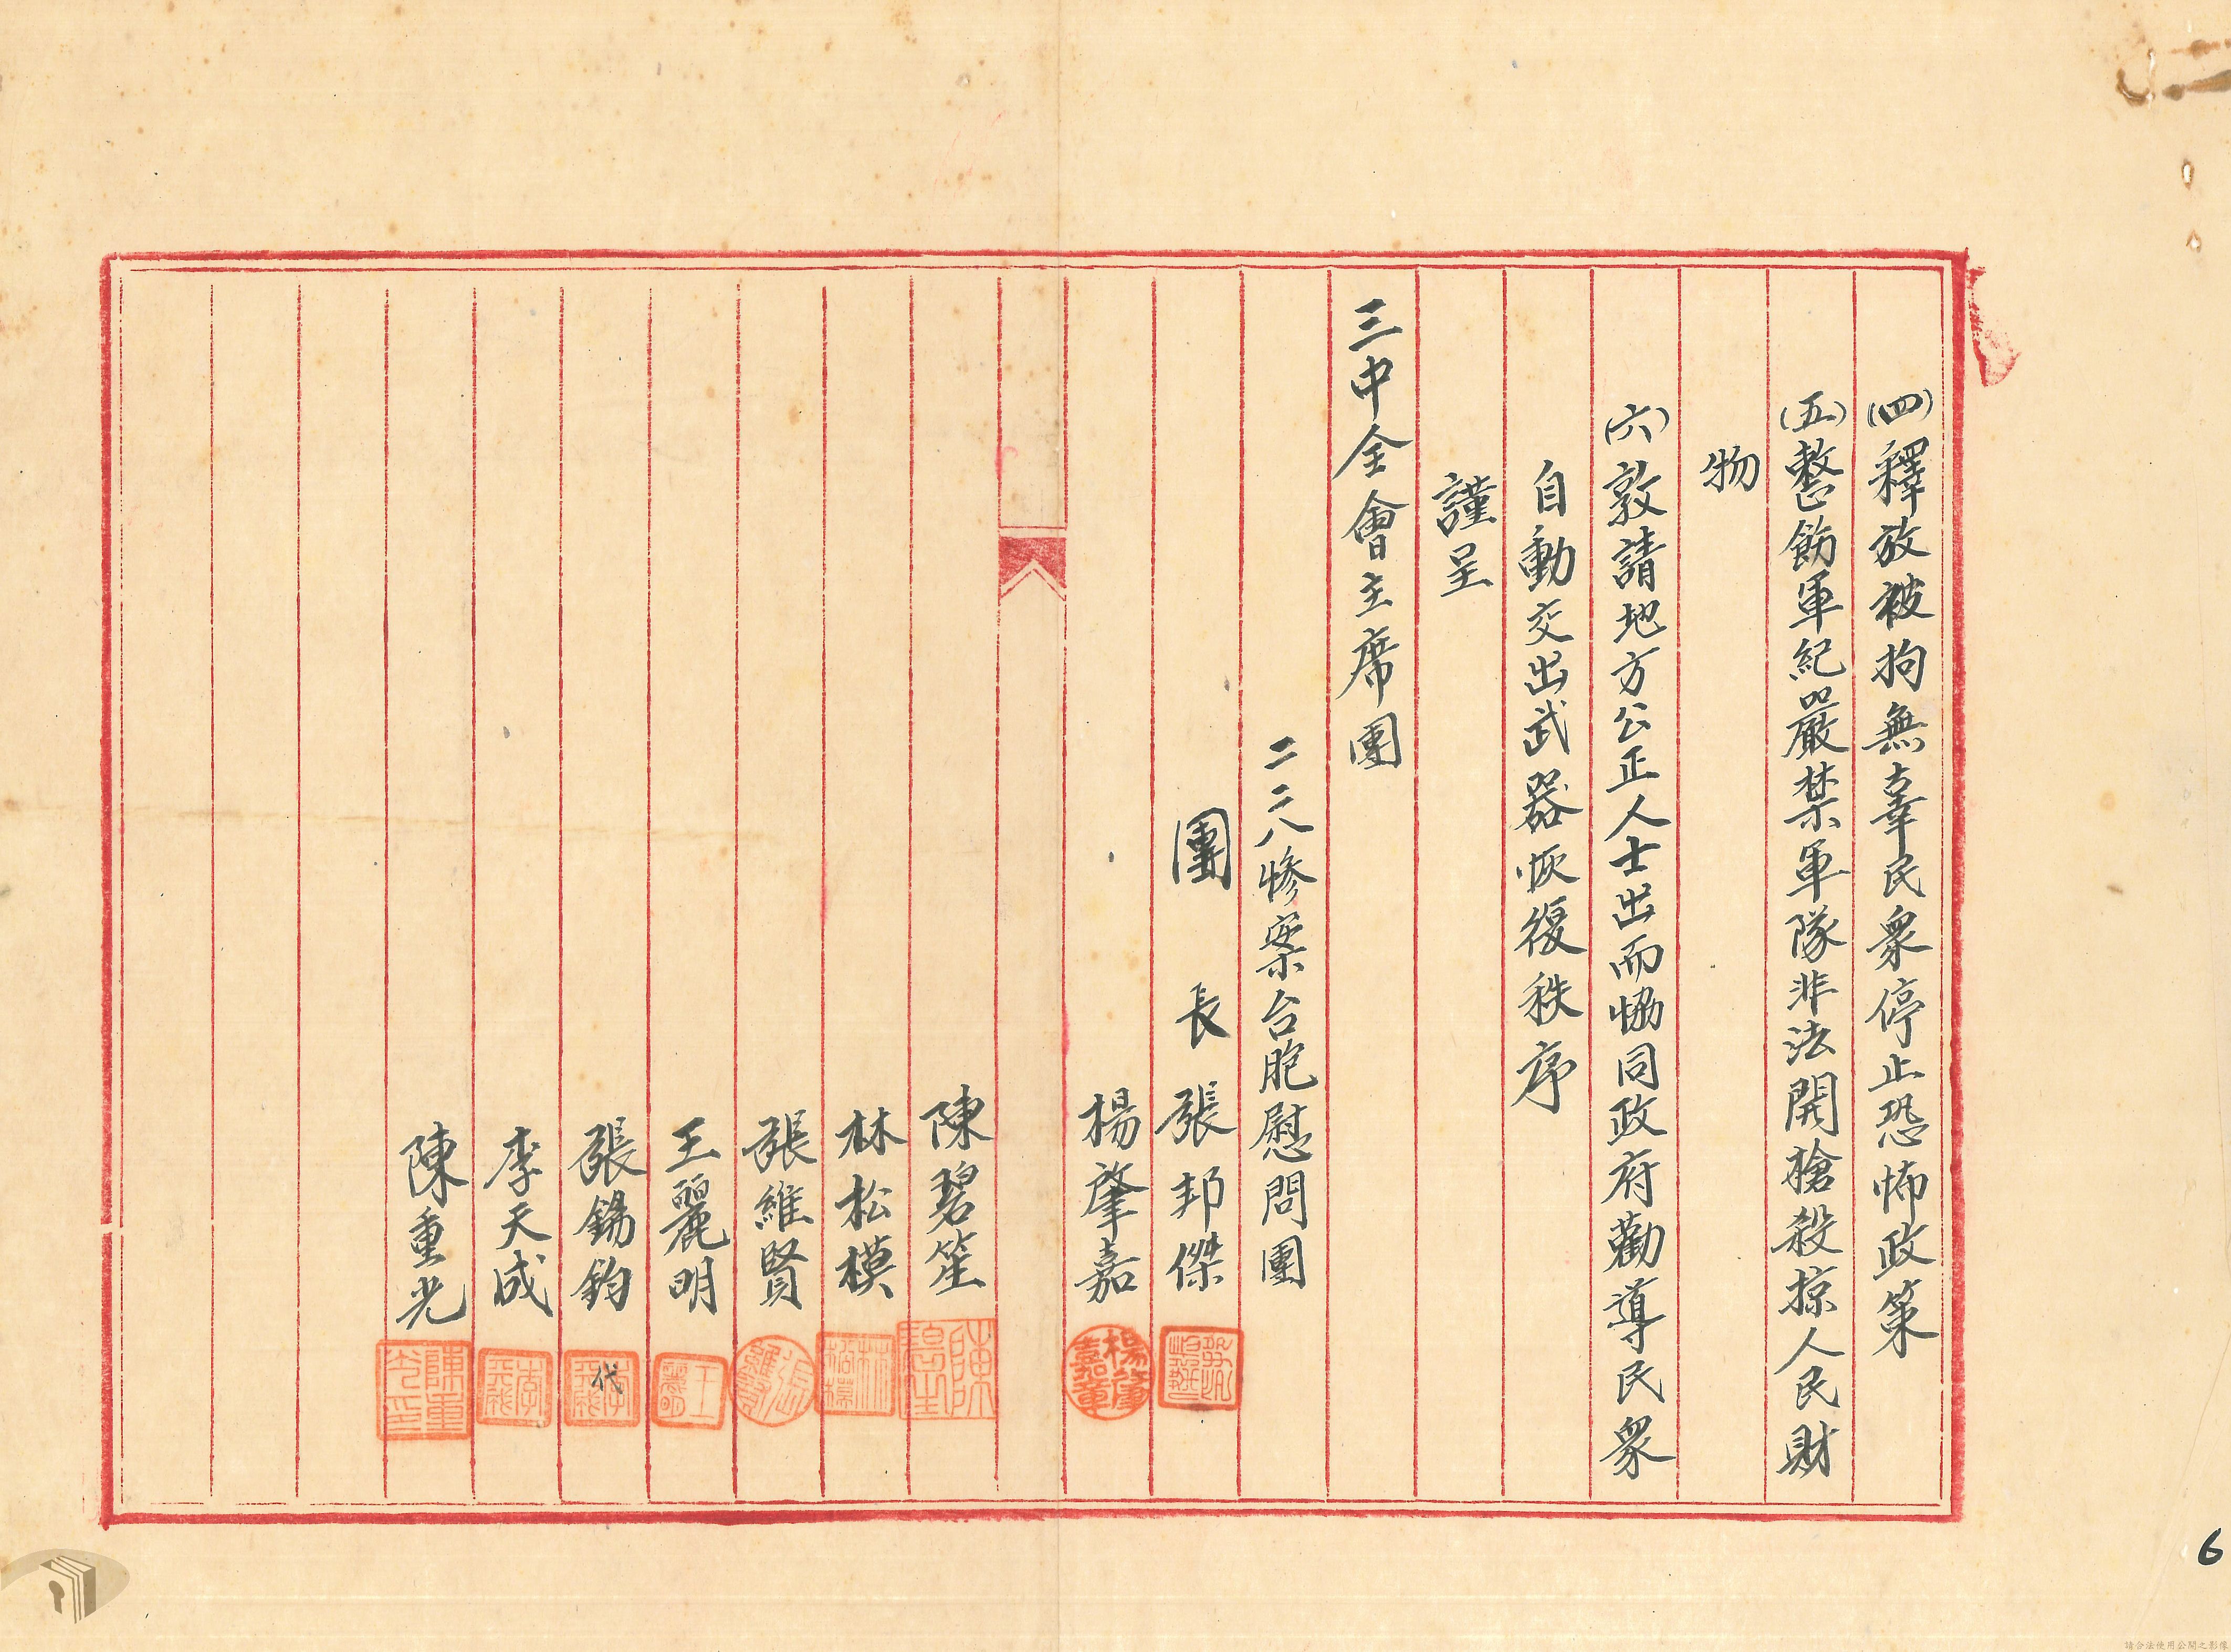 (四)釋放被拘無辜民衆停止恐怖政策
(五)整飭軍紀嚴禁軍隊非法開槍殺掠人民財
物
(六)敦請地方公正人士出而恊同政府勸導民衆
自動交出武器恢復秩序
謹呈
三中全會主席團
二二八慘案台胞慰問團
團長張邦傑
楊肇嘉
楊肇嘉章
陳碧笙
陳碧笙
林松模
林松模
張維賢
張維賢
王麗明
王麗明
張錫鈞
代
李天成
李天成
陳重光
陳重光印
6
請合法使用公開之影像